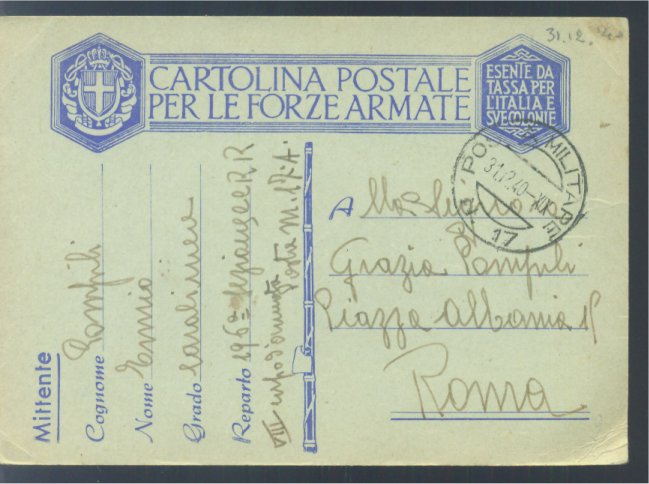 31.12.
CARTOLINA POSTALE
PER LE FORZE ARMATE
ESENTE DA
TASSA PER
L'ITALIA E
SVE COLONIE
POSTA MILITARE
31.12.40-XIX
17
Mittente
Cognome Pampili
Nome Ennio
Grado carabiniere
Reparto 196ª Sezione CC RR
VIII corpo d'armata
Posta M. 17. A.
A
Grazia Pampili
Piazza Albania
Roma